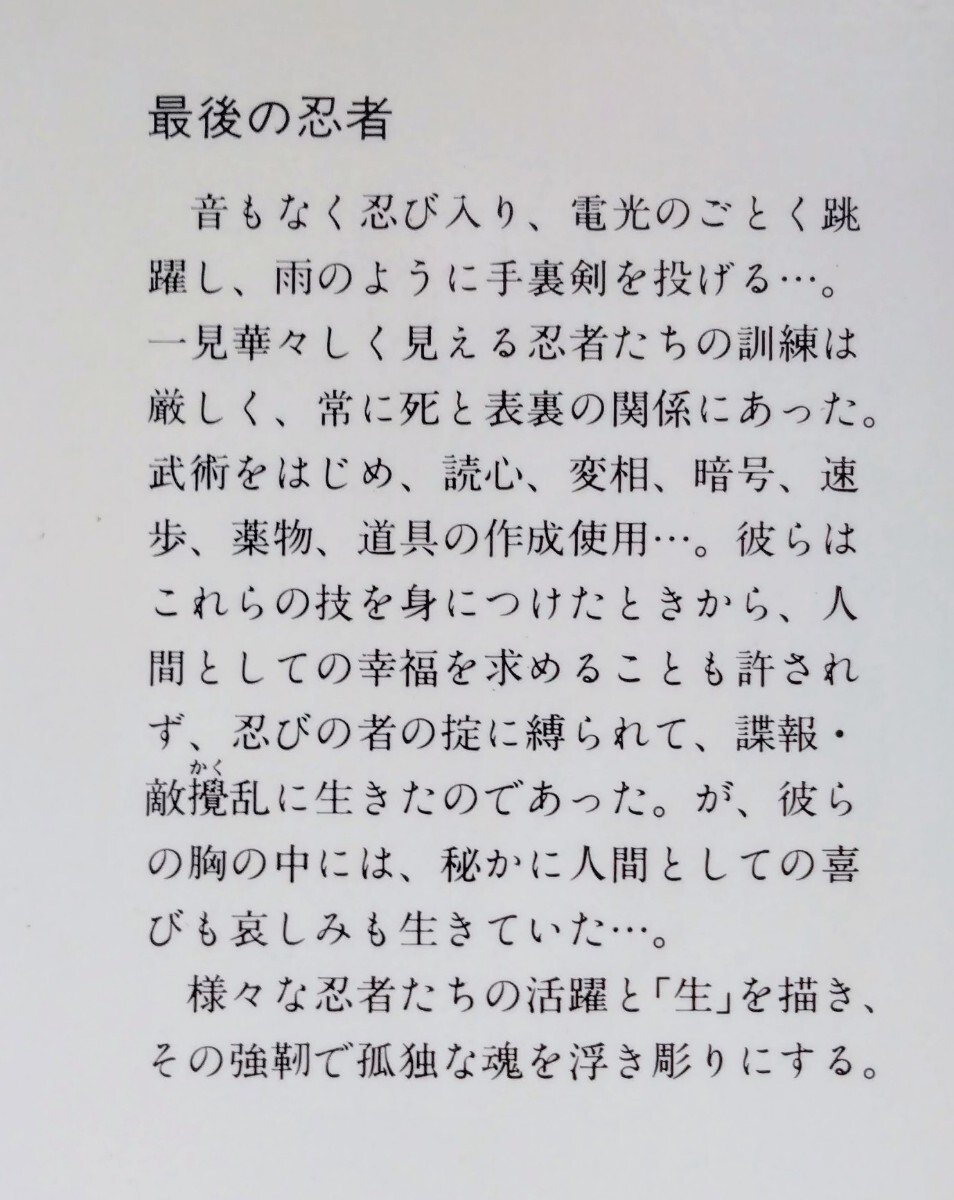 最後の忍者
　音もなく忍び入り、電光のごとく跳
躍し、雨のように手裏剣を投げる…。
一見華々しく見える忍者たちの訓練は
厳しく、常に死と表裏の関係にあった。
武術をはじめ、読心、変相、暗号、速
歩、薬物、道具の作成使用…。彼らは
これらの技を身につけたときから、人
間としての幸福を求めることも許され
ず、忍びの者の掟に縛られて、諜報・
かく
敵攪乱に生きたのであった。が、彼ら
の胸の中には、秘かに人間としての喜
びも哀しみも生きていた…。
　様々な忍者たちの活躍と「生」を描き、
その強靭で孤独な魂を浮き彫りにする。